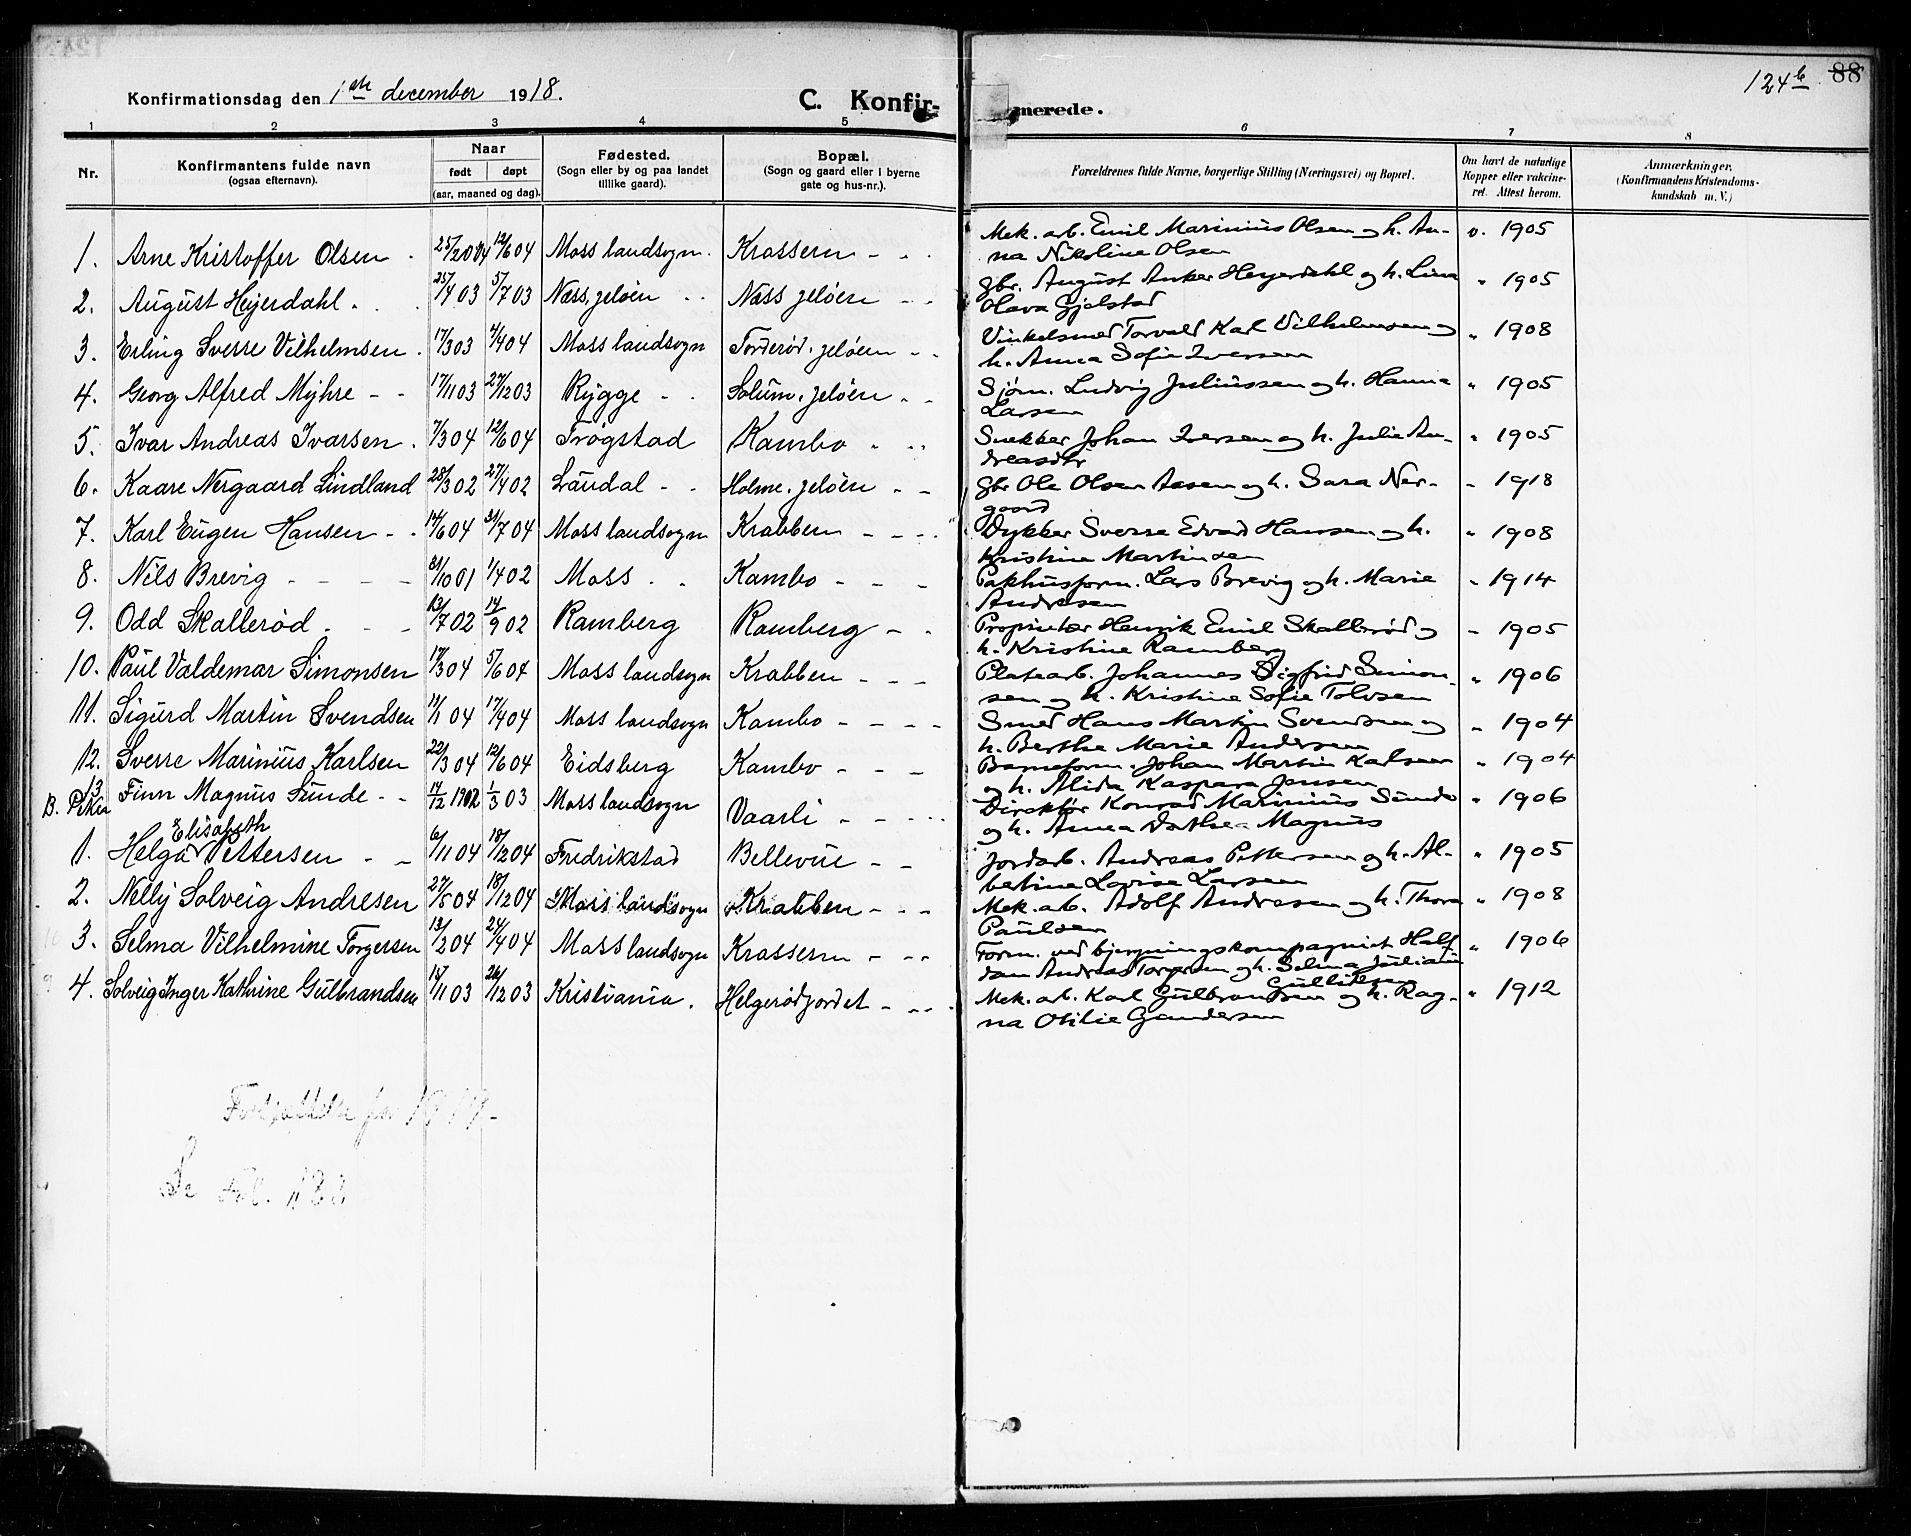 124b 88
Konfirmationsdag den 1ste december 1918. C. Konfirmerede.
1 2 3 4 5 6 7 8
Nr. Konfirmantens fulde navn (ogsaa efternavn). Naar født døpt (aar, maaned og dag). Fødested. (Sogn eller by og paa landet tillike gaard). Bopæl. (Sogn og gaard eller i byerne gate og hus-nr.). Forældrenes fulde Navne, borgerlige Stilling (Næringsvei) og Bopæl. Om havt de naturlige Kopper eller vakcineret. Attest herom. Anmærkninger. (Konfirmandens Kristendomskundskab m. V.)
1. Arne Kristoffer Olsen 25/2 04 12/6 04 Moss landsogn. Krossern Mek. arb. Emil Marinius Olsen og h. An- v. 1905
na Nikoline Olsen
2. August Heyerdahl. 25/4 03 5/7 03 Næss, jeløen Næss jeløen Gbr. August Anker Heyerdahl og h. Lina " 1905
Olava Gjølstad
3. Erling Sverre Vilhelmsen. 17/3 03 4/4 04 Moss landsogn Torderød, jeløen Vinkelsmed Torvald Karl Vilhelmsen og " 1908
h. Anna Sofie Iversen
4. Georg Alfred Myhre 17/11 03 27/12 03 Rygge Solum, jeløen Sjøm. Ludvig Juliussen og h. Hanna " 1905
Larsen
5. Ivar Andreas Ivarsen. 7/3 04 12/6 04 Trøgstad Kambo Snekker Johan Iversen og h. Julie An- " 1905
dreasdtr
6. Kaare Nergaard Lindland 28/3 02 27/4 02 Laudal Holme, jeløen Gbr Ole Olsen Aasen og h. Sara Ner- " 1918
gaard
7. Karl Eugen Hansen 14/6 04 31/7 04 Moss landsogn Krabben Dykker Sverre Edvard Hansen og h. " 1908
Kristine Martinsen
8. Nils Brevig 31/10 01 1/4 02 Moss Kambo Pakhusform. Lars Brevig og h. Marie " 1914
Andresen
9. Odd Skallerød 13/7 02 14/9 02 Ramberg Ramberg Proprietær Henrik Emil Skallerød og " 1905
h. Kristine Ramberg
10. Paul Valdemar Simonsen 17/3 04 5/6 04 Moss landsogn Krabben Platearb. Johannes Sigfrid Simon- " 1906
sen og h. Kristine Sofie Tolvsen
11. Sigurd Martin Svendsen 11/1 04 17/4 04 Moss landsogn Kambo Smed Hans Martin Svendsen og " 1904
h. Berthe Marie Andersen
12. Sverre Marinius Karlsen 22/3 04 12/6 04 Eidsberg Kambo Baneform. Johan Martin Karlsen " 1904
og h. Alida Kaspara Jensen
13 Finn Magnus Sunde 14/12 1902 1/3 03 Moss landsogn Vaarli Direktør Konrad Marinius Sunde " 1906
og h. Anna Dorthea Magnus
B. Piker
1. Helga Elisabeth Pettersen 6/11 04 18/12 04 Fredrikstad Bellevue Jordarb. Andreas Pettersen og h. Al- " 1905
bertine Lovise Larsen
2. Nelly Solveig Andresen 27/5 04 18/12 04 Moss landsogn Krabben Mek. arb. Adolf Andresen og h. Thora " 1908
Paulsen
3. Selma Vilhelmine Torgersen 13/2 04 24/4 04 Moss landsogn Krossern Form. ved bjergningskompagniet Half- " 1906
dan Andreas Torgersen og h. Selma Juliane
Gulliksen
4. Solveig Inger Kathrine Gulbrandsen 14/11 03 26/12 03 Kristiania. Helgerødjordet Mek. arb. Karl Gulbrandsen og h. Rag- " 1912
na Otilie Gundersen
Fortsættelse for 19
Se fol. 183